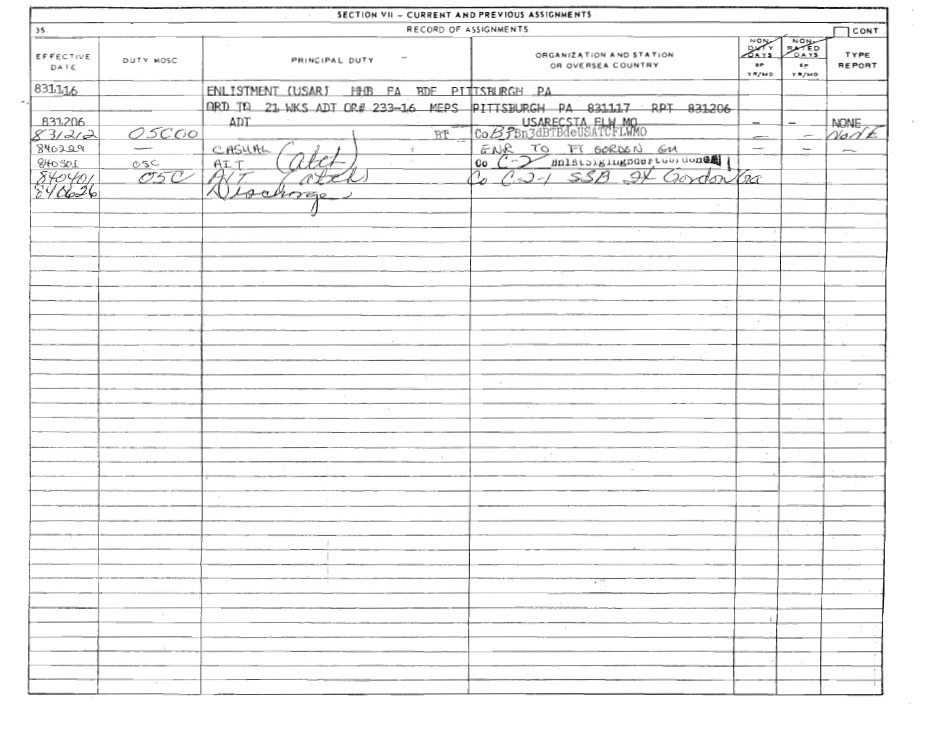 SECTION VII - CURRENT AND PREVIOUS ASSIGNMENTS
35. RECORD OF ASSIGNMENTS CONT
EFFECTIVE DATE DUTY MOSC PRINCIPAL DUTY ORGANIZATION AND STATION OR OVERSEA COUNTRY NON-DUTY DAYS EP YR/MO NON-RATED DAYS EP YR/MO TYPE REPORT
831116 ENLISTMENT (USAR) HHB FA BDE PITTSBURGH PA
ORD TO 21 WKS ADT OR# 233-16 MEPS PITTSBURGH PA 831117 RPT 831206
831206 ADT USARECSTA FLW MO - - NONE
831212 05C00 BT Co B 3dBTBdeUSATCFLWMO - - NONE
840229 - CASUAL (atch) ENR TO FT GORDON GA - -
840301 05C AIT Co C-2
840401 05C AIT atch Co C-2-1 SSB Ft Gordon Ga
840626 Discharge